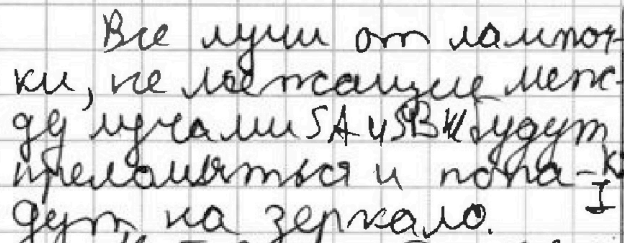 Все лучи от лампоч-
ки, не лежащие меж-
ду лучами SA и SB будут
преломяться и попа-
дут на зеркало.